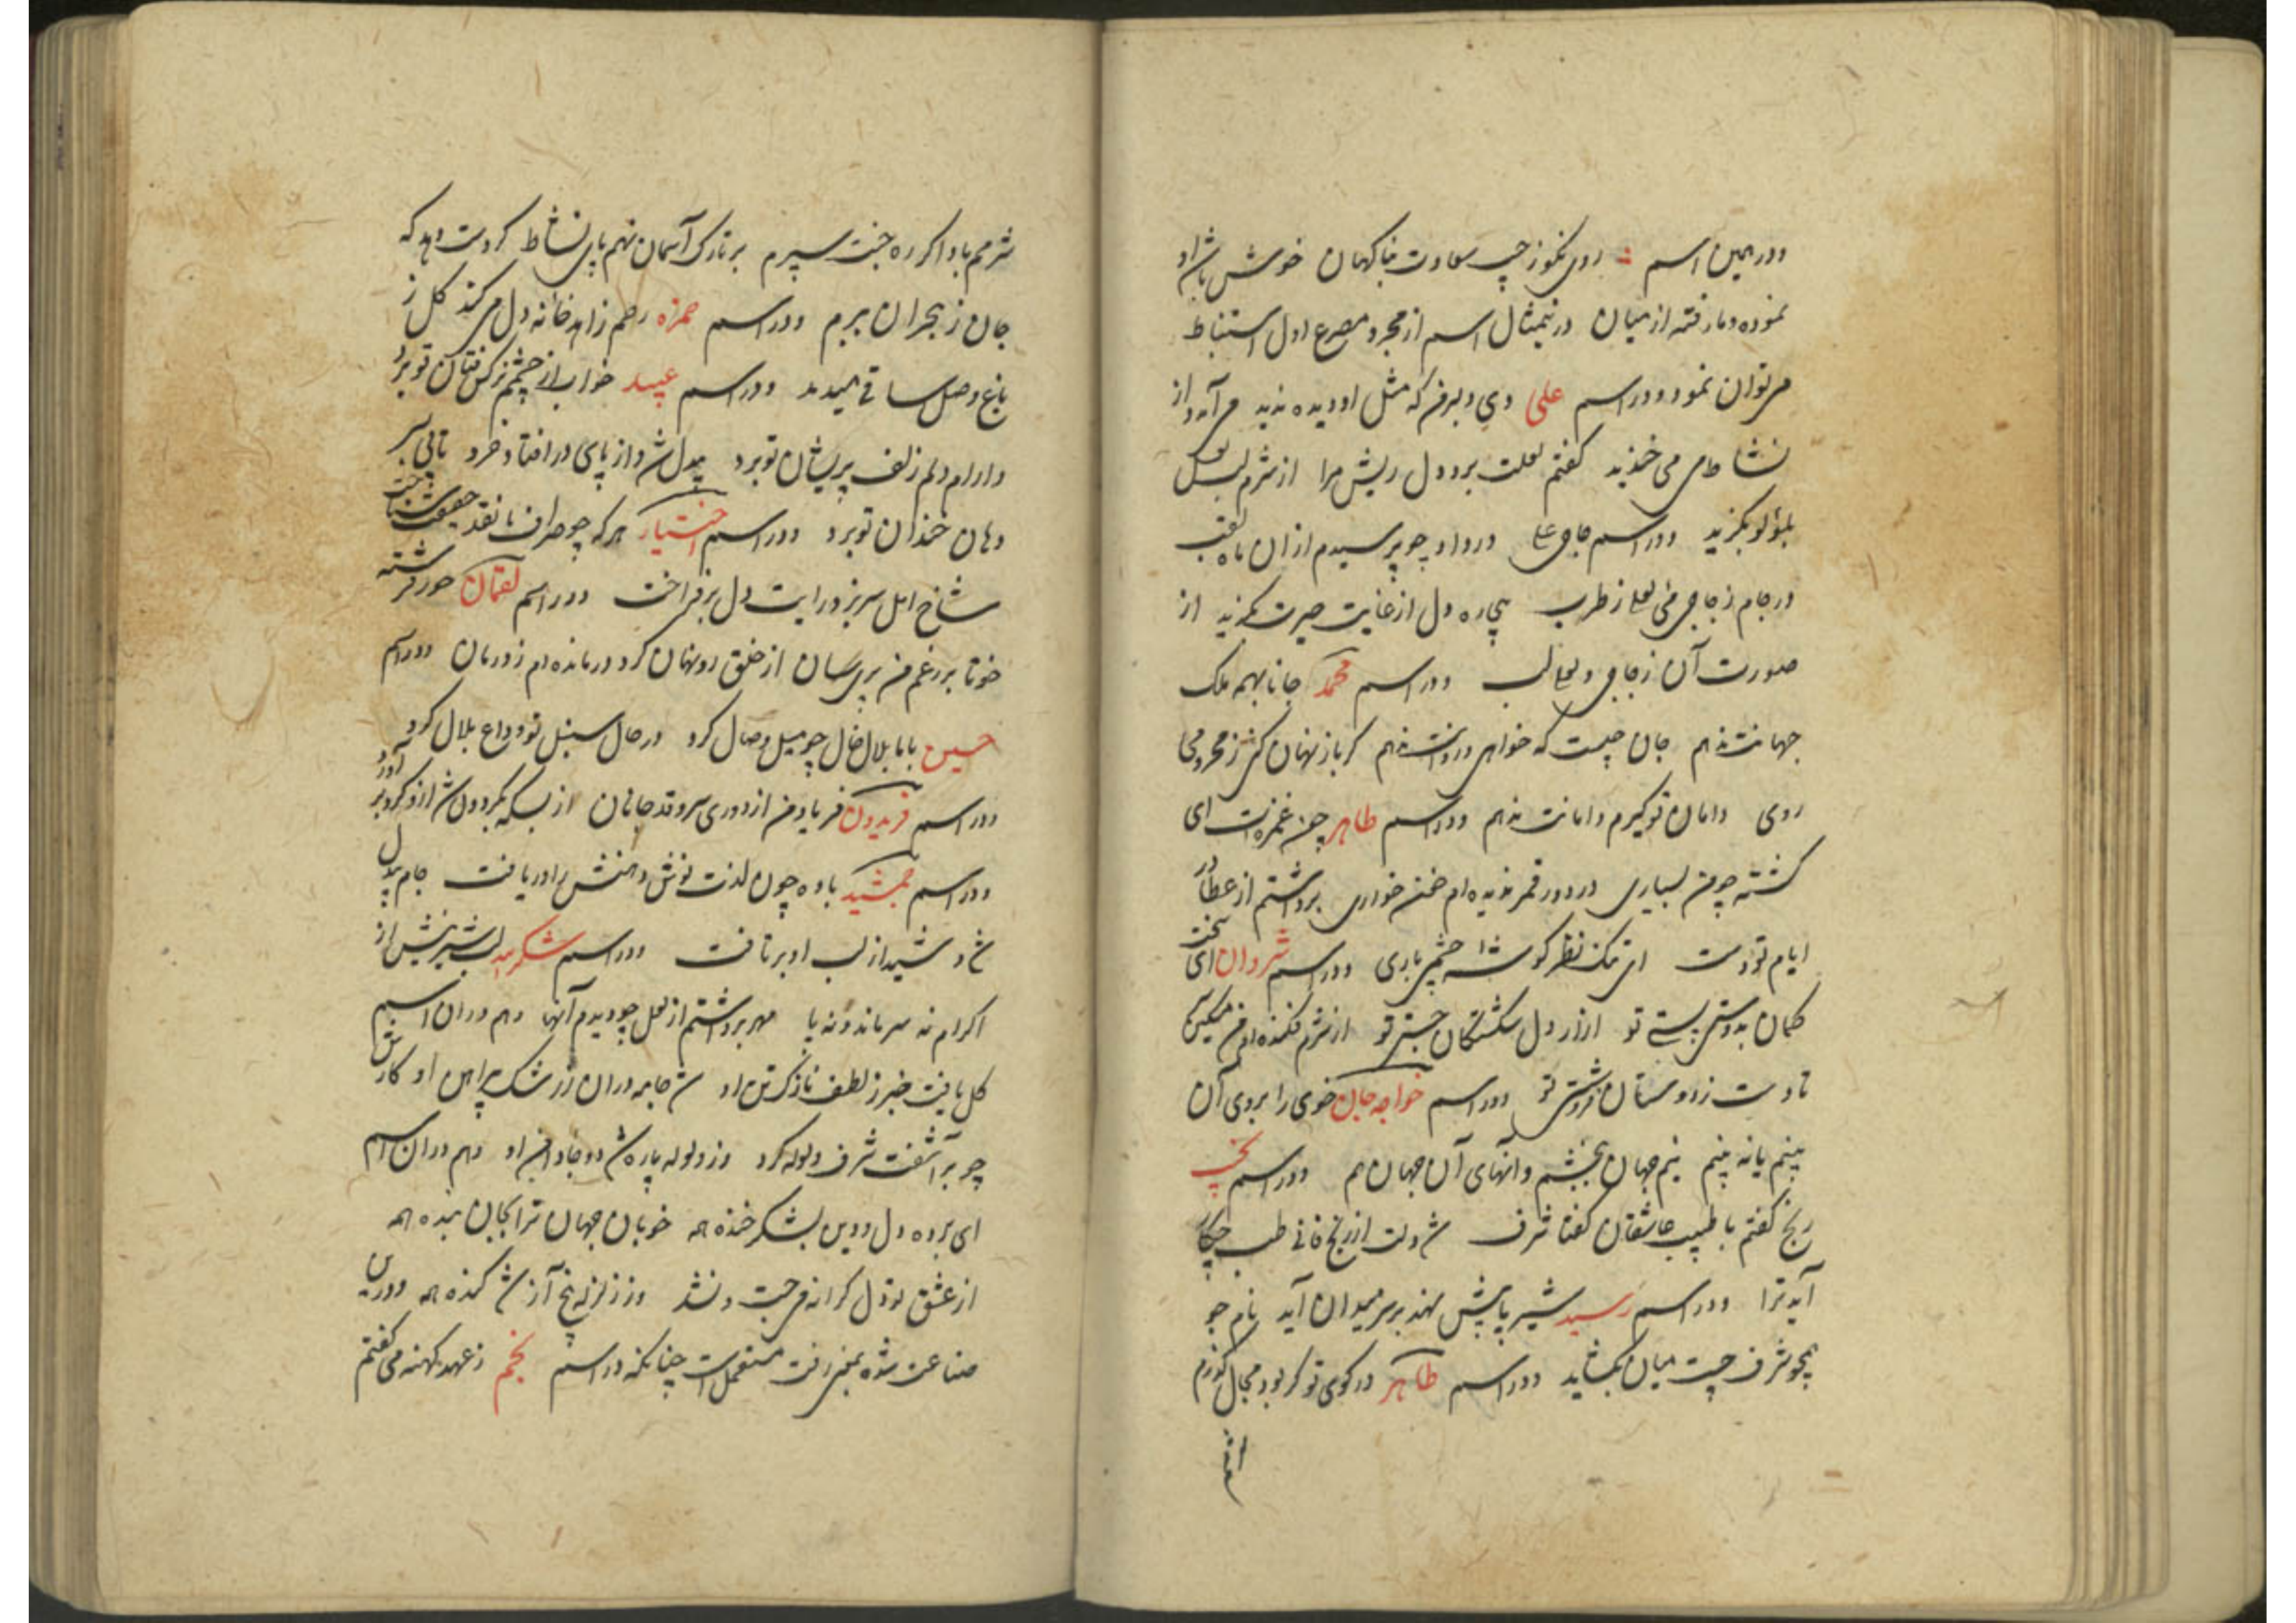 ودر همین اسم روی نکو ز چپ سعادت بناگهان خوش باش او
نموده و مار فته از میان درین مثال اسم از مجرد مصرع اول استنباط
می توان نمود ودر اسم علی دی دلبر من که مثل او دیده ندید می آمد و از
نشاط می خندید گفتم لعلت برد دل ریش مرا از شرم لبش
بلؤلؤ بگزید ودر اسم حاجی علی درد او چو پرسیدم از آن ماه لقب
در جام زجاجی می لعلی ز طرب بیچاره دل از غایت حیرت بگزید از
صورت آن زجاجی و لعلی لب ودر اسم محمد جانا بهمه ملک
جهانت ندهم جان چیست که خواهی و روانت ندهم گر باز نهان کنی ز محرومی
روی دامان تو گیرم و امانت ندهم ودر اسم طاهر چون غمزه ات ای
کشته چو من بسیاری در دور قمر ندیده ام خونخواری برداشتم از عطار در
ایام تو دست ای یک نظر گوشه چشمی باری ودر اسم شروان ای سخت
کمان بدوستی پستی تو آزار دل شکستگان جستی تو از شرم فکنده ام من مسکین سر
تا دست ز دوستان فروشستی تو ودر اسم خواجه جان خوی را بروی آن
بینم یا نه بینم نیم جهان ببخشم و آنهای آن جهان هم ودر اسم نجیب
رنج گفتم با طبیب عاشقان گفتا شرف شد دلت از رنج فانی طب چکار
آید ترا ودر اسم رسید شیر پایش نهد بر سر میدان آید نام جو
همچو شرف چست میان بگشاید ودر اسم طاهر در کوی تو گر بود مجال گذرم
شرمم باد اگر ره جنت سپرم بر تارک آسمان نهم پای نشاط گر دست دهد که
جان ز هجران ببرم ودر اسم حمزه رحم زاهد خانه دل می کند گل ز
باغ وصل ساقی میدمد ودر اسم عبید خواب از چشم نرگس فتان تو برد
و آرام دلم زلف پریشان تو برد بیدل شد و از پای در افتاد و خرد تا پی بسر
دهان خندان تو برد ودر اسم اختیار هر که چو صراف ما نقد حقیقت شناخت
شاخ امل سر بزد و رایت دل برفراخت ودر اسم لقمان حور فرشته
خو تا بر رغم من پریسان از خلق رو نهان کرد درمانده ام ز درمان ودر اسم
حسین بابا بلال خال چو میل وصال کرد در حال سنبل تو وداع بلال کرد
ودر اسم فریدون فریاد من از دوری سرو قد جانان از بسکه بگردون شد ازو گرد بر آورد
ودر اسم جمشید باده چون لذت نوش دهنش را دریافت جام بیدل
شد و شید از لب او برتافت ودر اسم شکر لب شیرینش از
اکرام نه سر ماند و نه پا مهر برداشتم از لعل چو دیدم آنها وهم در آن اسم
گل یافت خبر ز لطف نازک تن او شد جامه دران ز رشک پیراهن او کارش
چو بر آشفت شرف ولوله کرد وز ولوله پاره شد دو جا دامن او وهم در آن اسم
ای برده دل و دین بشکر خنده همه خوبان جهان ترا بجان بنده همه
از عشق تو دل کرانه می جست و نشد وز زلزله بیخ آز شد کنده همه ودرین
صناعت شوه بمعنی رفت مستعمل است چنانکه در اسم نجم ز عهد کهنه می گفتم